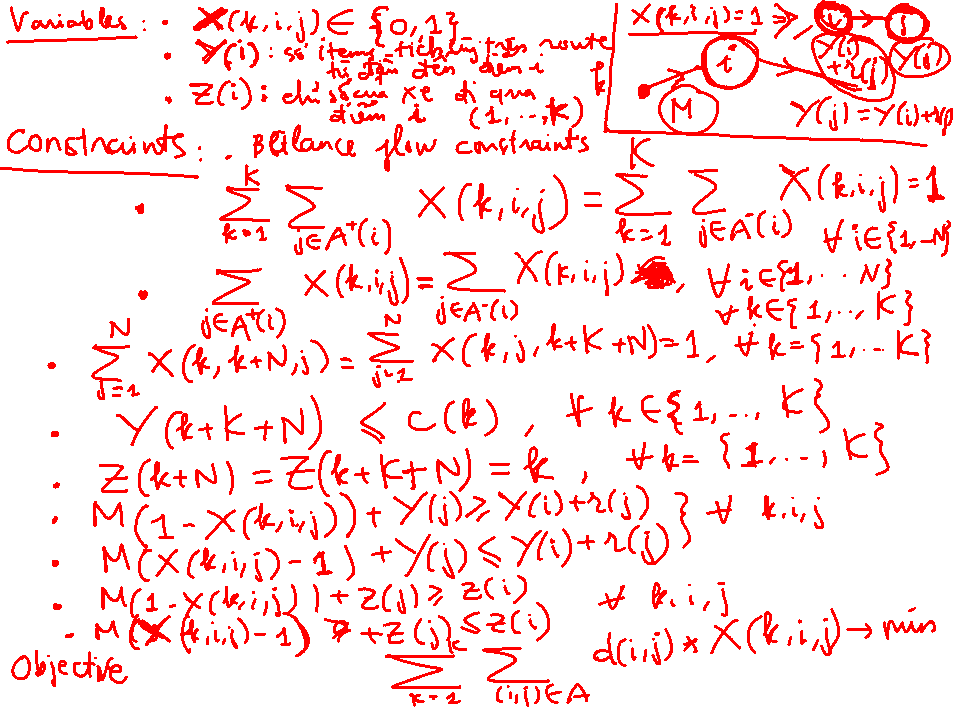 Variables: • X(k,i,j) ∈ {0,1}
• Y(i): số items tích lũy trên route
từ đầu đến điểm i
• Z(i): chỉ số của xe đi qua
điểm i (1,...,K)
X(k,i,j)=1 ⇒ i j
Y(i) + r(j) Y(j)
k i
M Y(j) = Y(i) +
Constraints: • Balance flow constraints
• ∑_{k=1}^{K} ∑_{j∈A⁺(i)} X(k,i,j) = ∑_{k=1}^{K} ∑_{j∈A⁻(i)} X(k,i,j) = 1 ∀ i∈{1,-N}
• ∑_{j∈A⁺(i)} X(k,i,j) = ∑_{j∈A⁻(i)} X(k,i,j), ∀ i∈{1,...N} ∀ k∈{1,..,K}
• ∑_{j=1}^{N} X(k,k+N,j) = ∑_{j=1}^{N} X(k,j,k+K+N) = 1, ∀ k={1,..K}
• Y(k+K+N) ≤ c(k), ∀ k∈{1,..,K}
• Z(k+N) = Z(k+K+N) = k, ∀ k={1,..,K}
• M(1-X(k,i,j)) + Y(j) ≥ Y(i)+r(j) } ∀ k,i,j
• M(X(k,i,j)-1) + Y(j) ≤ Y(i)+r(j)
• M(1-X(k,i,j)) + Z(j) ≥ Z(i) ∀ k,i,j
• M(X(k,i,j)-1) + Z(j) ≤ Z(i)
Objective ∑_{k=1}^{K} ∑_{(i,j)∈A} d(i,j) * X(k,i,j) → min